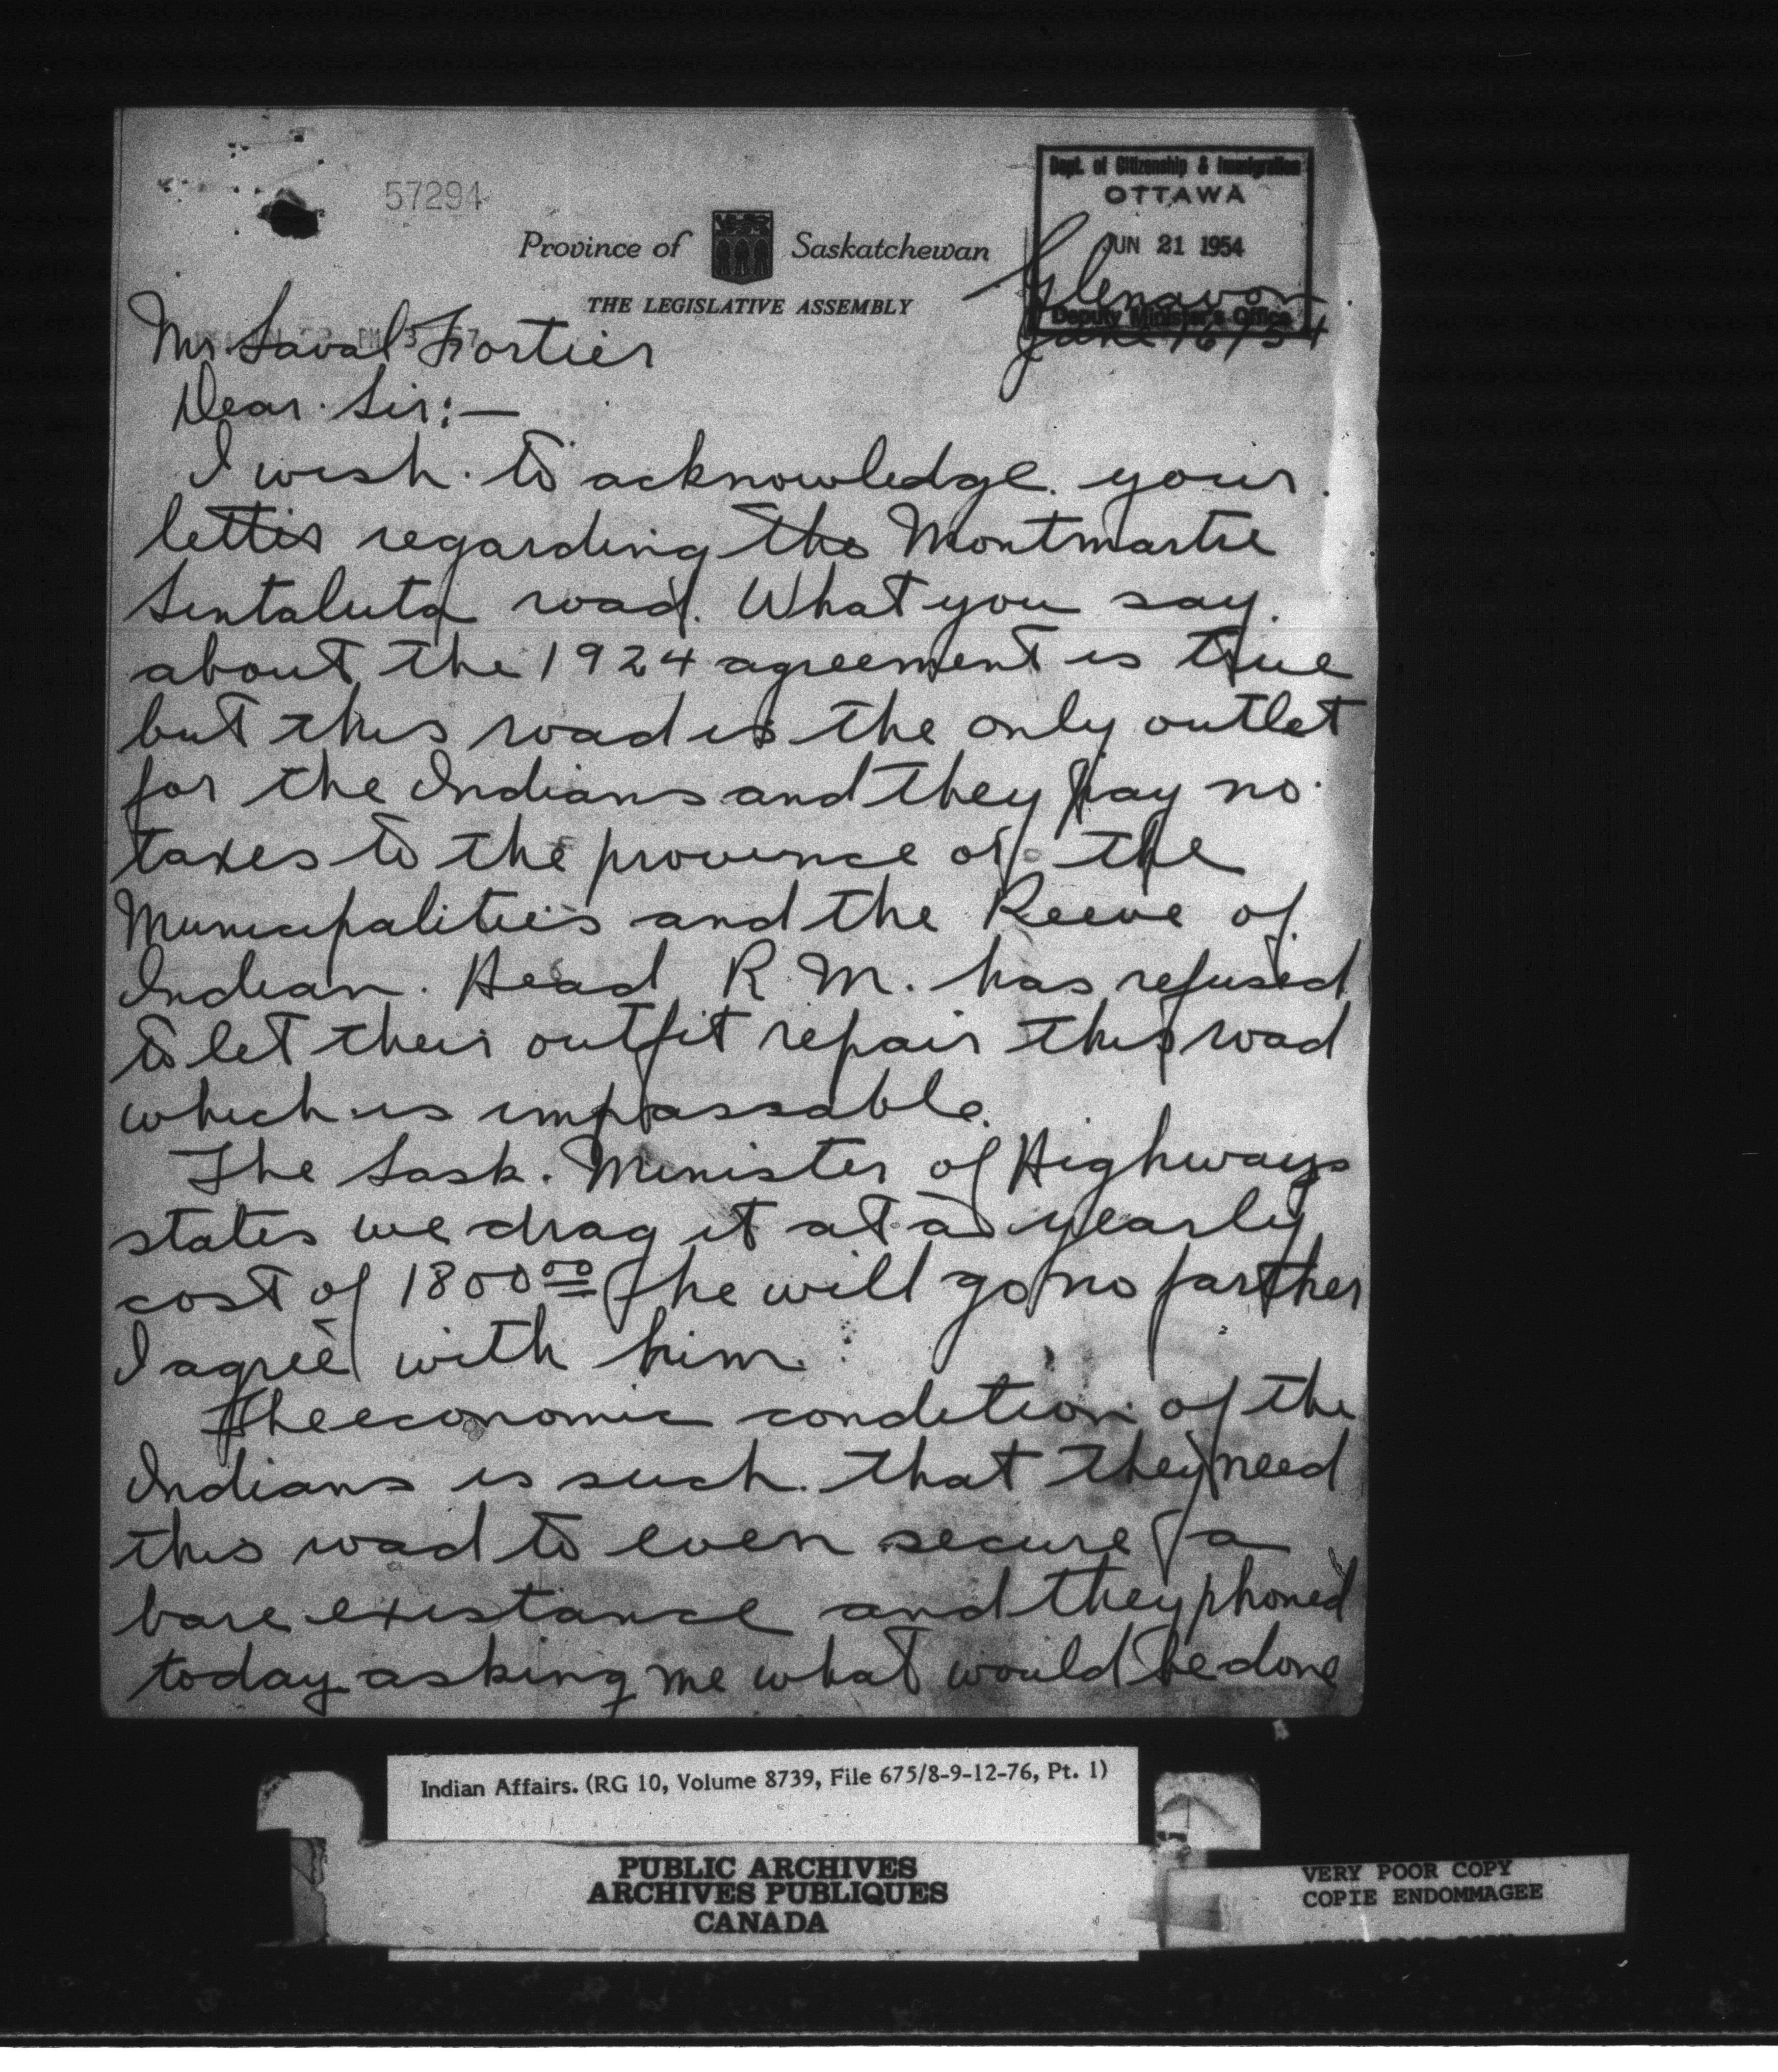 57294
Dept. of Citizenship & Immigration
OTTAWA
JUN 21 1954
Deputy Minister's Office
Province of Saskatchewan
THE LEGISLATIVE ASSEMBLY
Glenavon
June 16/54
Mr. Laval Fortier
Dear Sir:—
I wish to acknowledge your
letter regarding the Montmartre
Sintaluta road. What you say
about the 1924 agreement is true
but this road is the only outlet
for the Indians and they pay no
taxes to the province or the
Municipalities and the Reeve of
Indian Head R.M. has refused
to let their outfit repair this road
which is impassable.
The Sask. Minister of Highways
states we drag it at a yearly
cost of 1800.00 he will go no farther
I agree with him.
The economic condition of the
Indians is such that they need
this road to even secure a
bare existance and they phoned
today asking me what would be done
Indian Affairs. (RG 10, Volume 8739, File 675/8-9-12-76, Pt. 1)
PUBLIC ARCHIVES
ARCHIVES PUBLIQUES
CANADA
VERY POOR COPY
COPIE ENDOMMAGEE